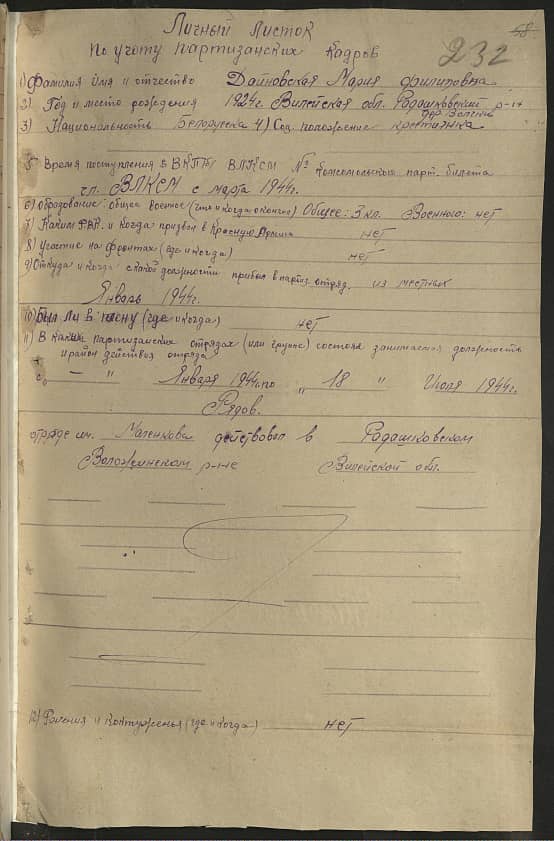 58
232
Личный Листок
По учоту партизанских кадров
1) Фамилия имя и отчество Дайновская Мария Филиповна
2) Год и место рождения 1924г. Вилейская обл. Радашковский р-н
дер.
3) Национальность Белоруска 4) Соц. положение крестянка
5 Время поступления в ВКП/б/ ВЛКСМ № комсомольского парт. билета
чл. ВЛКСМ с марта 1944г.
6) Образование: общее военное (что и когда окончил) Общее: 3 кл. Военного: нет
7) Каким РВК и когда призван в Красную Армию нет
8) Участие на фронтах (где и когда) нет
9) Откуда и когда с какой должности прибыл в партиз. отряд. из местных
Январь 1944г.
10) Был ли в плену (где и когда) нет
11) В каких партизанских отрядах (или группе) состоял занимаемая должность
и район действия отряда
с " — " Января 1944г. по " 18 " Июля 1944г.
Рядов.
отряде им. Маленкова действовал в Радашковском
Воложинском р-не Вилейской обл.
12) Ранения и контуженья (где и когда) нет